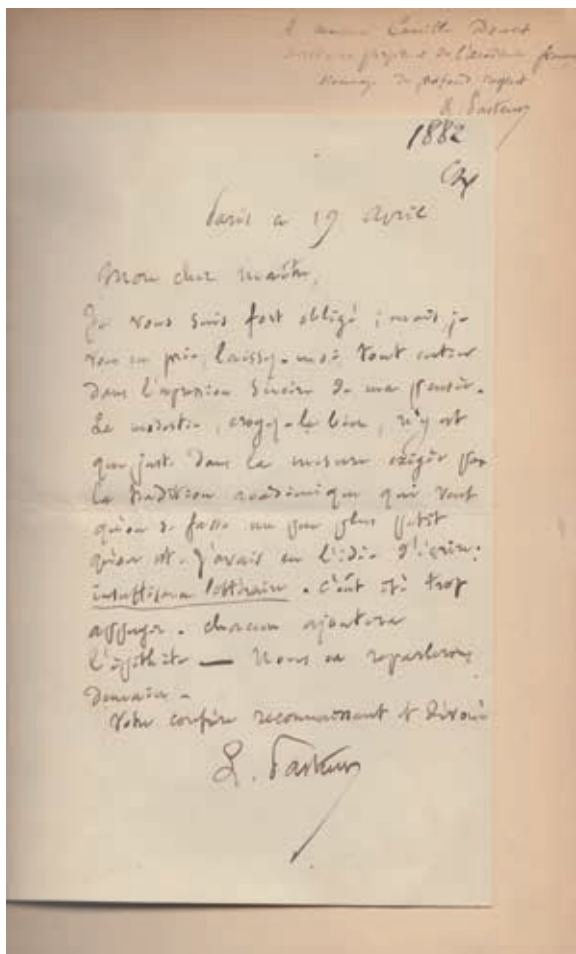 A monsieur Camille Doucet
secrétaire perpétuel de l'académie française
hommage de profond respect
L. Pasteur
1882
Paris ce 19 avril
Mon cher maître,
Je vous suis fort obligé ; mais, je
vous en prie, laissez-moi tout entier
dans l'expression sincère de ma pensée.
La modestie, croyez-le bien, n'y est
que juste dans la mesure exigée par
la tradition académique qui veut
qu'on se fasse un peu plus petit
qu'on est. J'avais eu l'idée d'écrire :
insuffisance littéraire. c'eût été trop
appuyer. chacun ajoutera
l'épithète — Nous en reparlerons
demain.
Votre confrère reconnaissant et dévoué
L. Pasteur